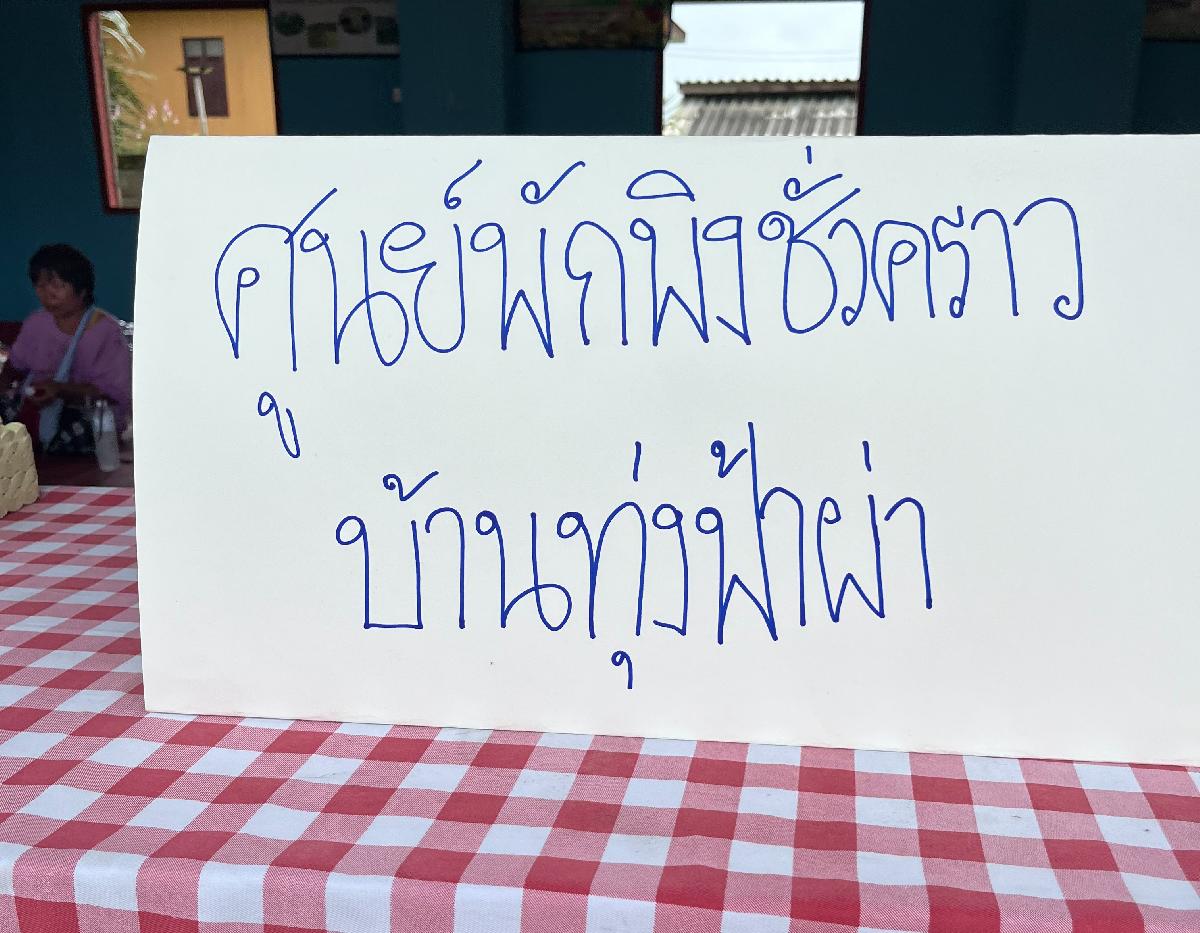 ศูนย์พักพิงชั่วคราว
บ้านทุ่งฟ้าผ่า